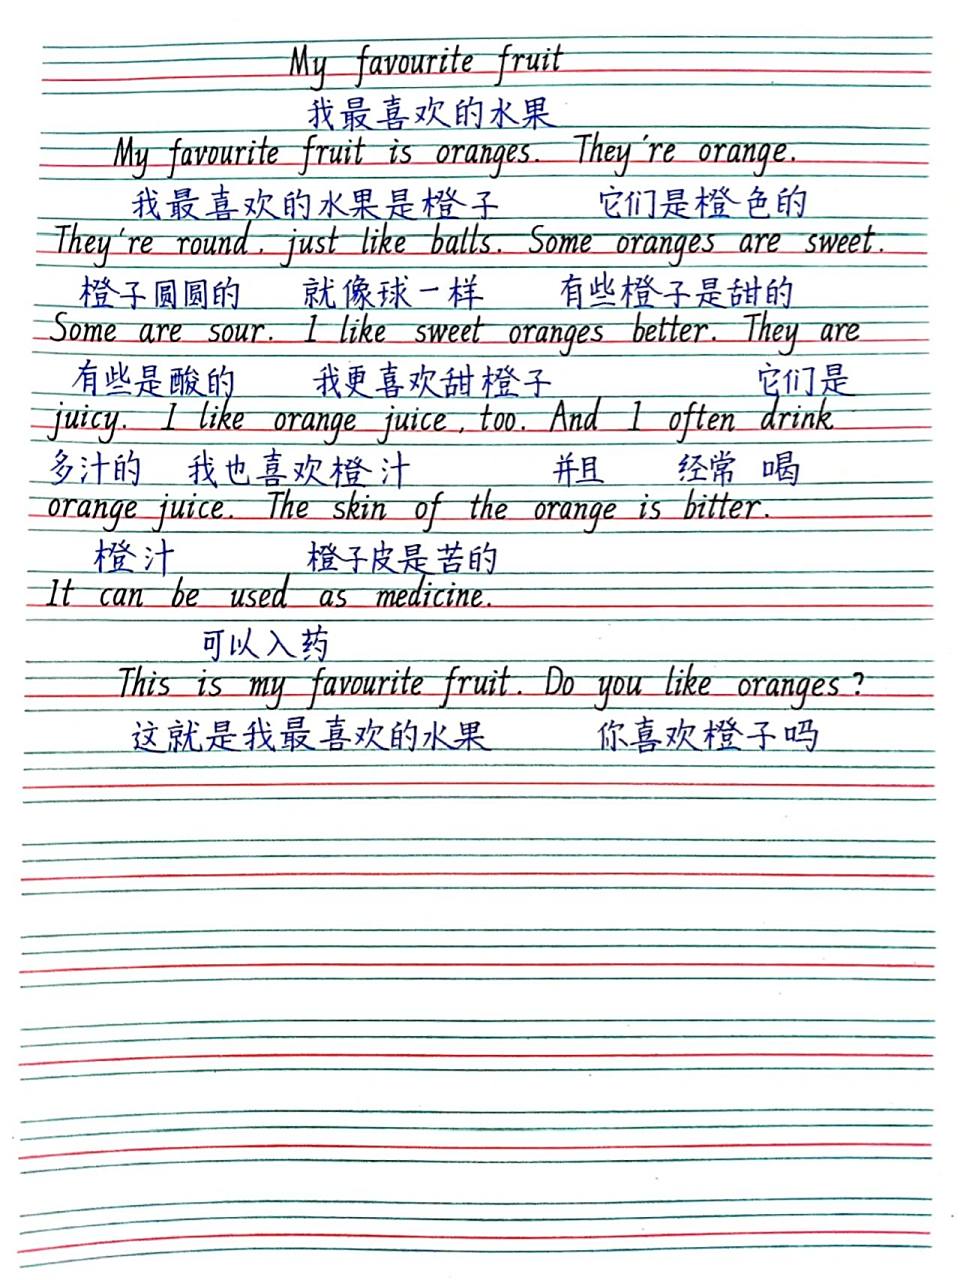 My favourite fruit
我最喜欢的水果
My favourite fruit is oranges. They're orange.
我最喜欢的水果是橙子 它们是橙色的
They're round, just like balls. Some oranges are sweet.
橙子圆圆的 就像球一样 有些橙子是甜的
Some are sour. I like sweet oranges better. They are
有些是酸的 我更喜欢甜橙子 它们是
juicy. I like orange juice, too. And I often drink
多汁的 我也喜欢橙汁 并且 经常 喝
orange juice. The skin of the orange is bitter.
橙汁 橙子皮是苦的
It can be used as medicine.
可以入药
This is my favourite fruit. Do you like oranges?
这就是我最喜欢的水果 你喜欢橙子吗